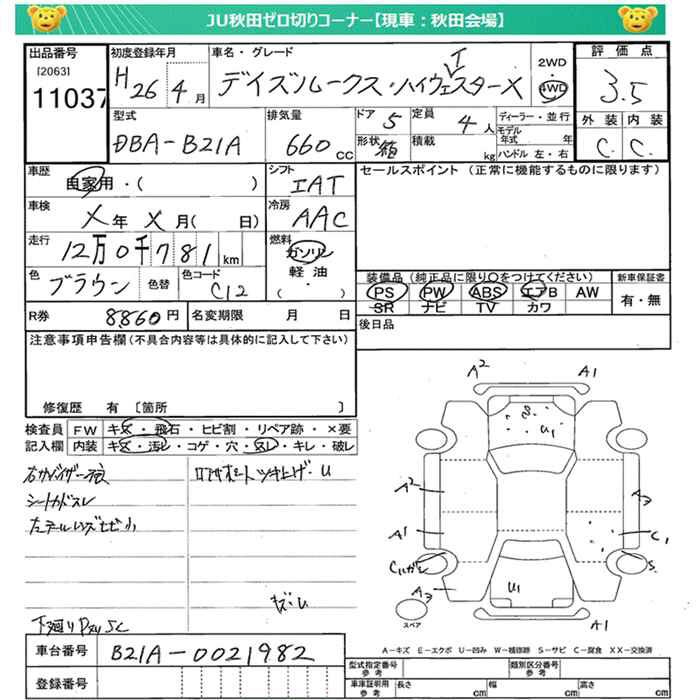 JU秋田ゼロ切りコーナー【現車:秋田会場】
出品番号
[2063]
11037
初度登録年月
H26 4月
車名・グレード
デイズルークス・ハイウェスターX
2WD
・
4WD
評価点
3.5
外装 内装
C. C.
型式
DBA-B21A
排気量
660 cc
ドア 5
定員 4人
形状 箱
積載 kg
ディーラー・並行
モデル年式 年
ハンドル 左・右
車歴
自家用・( )
シフト
IAT
セールスポイント (正常に機能するものに限ります)
車検
X年 X月( 日)
冷房
AAC
走行
12万0千781km
燃料
ガソリン
軽油
( ・ )
色
ブラウン
色替
色コード
C12
装備品(純正品に限り○をつけてください)
新車保証書
PS PW ABS エアB AW
SR ナビ TV カワ
有・無
R券 8860円
名変期限 月 日
後日品
注意事項申告欄(不具合内容等は具体的に記入して下さい)
修復歴 有 〔箇所 〕
検査員記入欄
FW キズ・飛石・ヒビ割・リペア跡・×要
内装 キズ・汚レ・コゲ・穴・スレ・キレ・破レ
シートカドスレ
下廻り
A2 A1
U1
A2
A3
A1
C1
S.
U1
A3
A1
スペア
A-キズ E-エクボ U-凹み W-補修跡 S-サビ C-腐食 XX-交換済
車台番号
B21A-0021982
登録番号
型式指定番号 参考
類別区分番号 参考
車庫証明用 参考
長さ cm 幅 cm 高さ cm